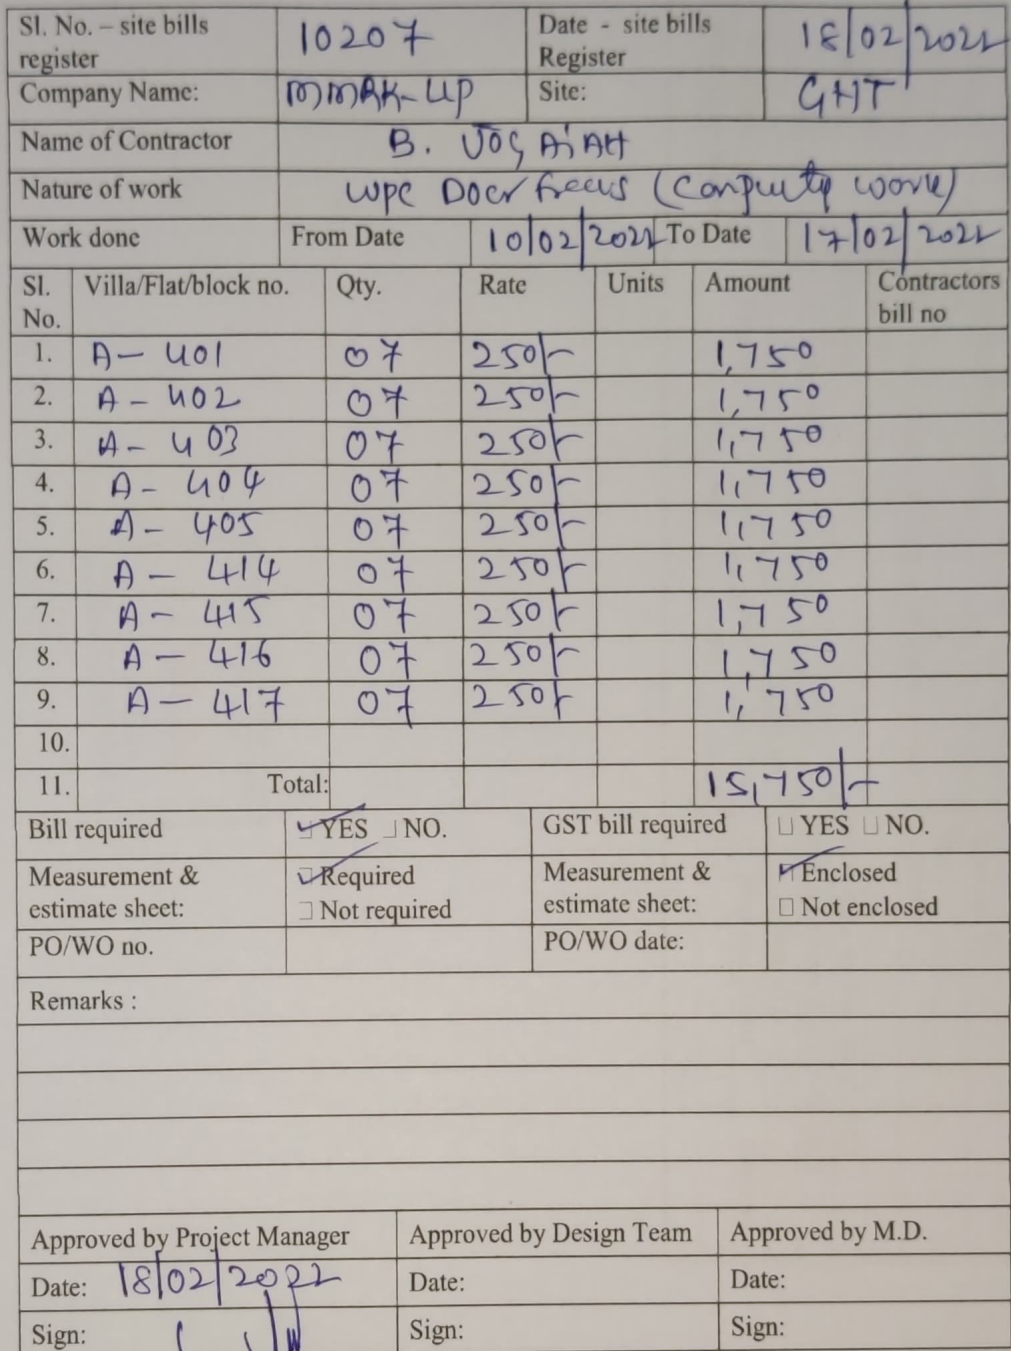 Sl. No. – site bills register 10207 Date - site bills Register 18/02/2022
Company Name: MMRK-UP Site: GHT
Name of Contractor B.
Nature of work WPC Door
Work done From Date 10/02/2022 To Date 17/02/2022
Sl. No. Villa/Flat/block no. Qty. Rate Units Amount Contractors bill no
1. A- 401 07 250/- 1,750
2. A - 402 07 250/- 1,750
3. A- 403 07 250/- 1,750
4. A- 404 07 250/- 1,750
5. A- 405 07 250/- 1,750
6. A- 414 07 250/- 1,750
7. A- 415 07 250/- 1,750
8. A- 416 07 250/- 1,750
9. A- 417 07 250/- 1,750
10.
11. Total: 15,750/-
Bill required YES NO. GST bill required YES NO.
Measurement & estimate sheet: Required Not required Measurement & estimate sheet: Enclosed Not enclosed
PO/WO no. PO/WO date:
Remarks :
Approved by Project Manager Approved by Design Team Approved by M.D.
Date: 18/02/2022 Date: Date:
Sign: Sign: Sign: